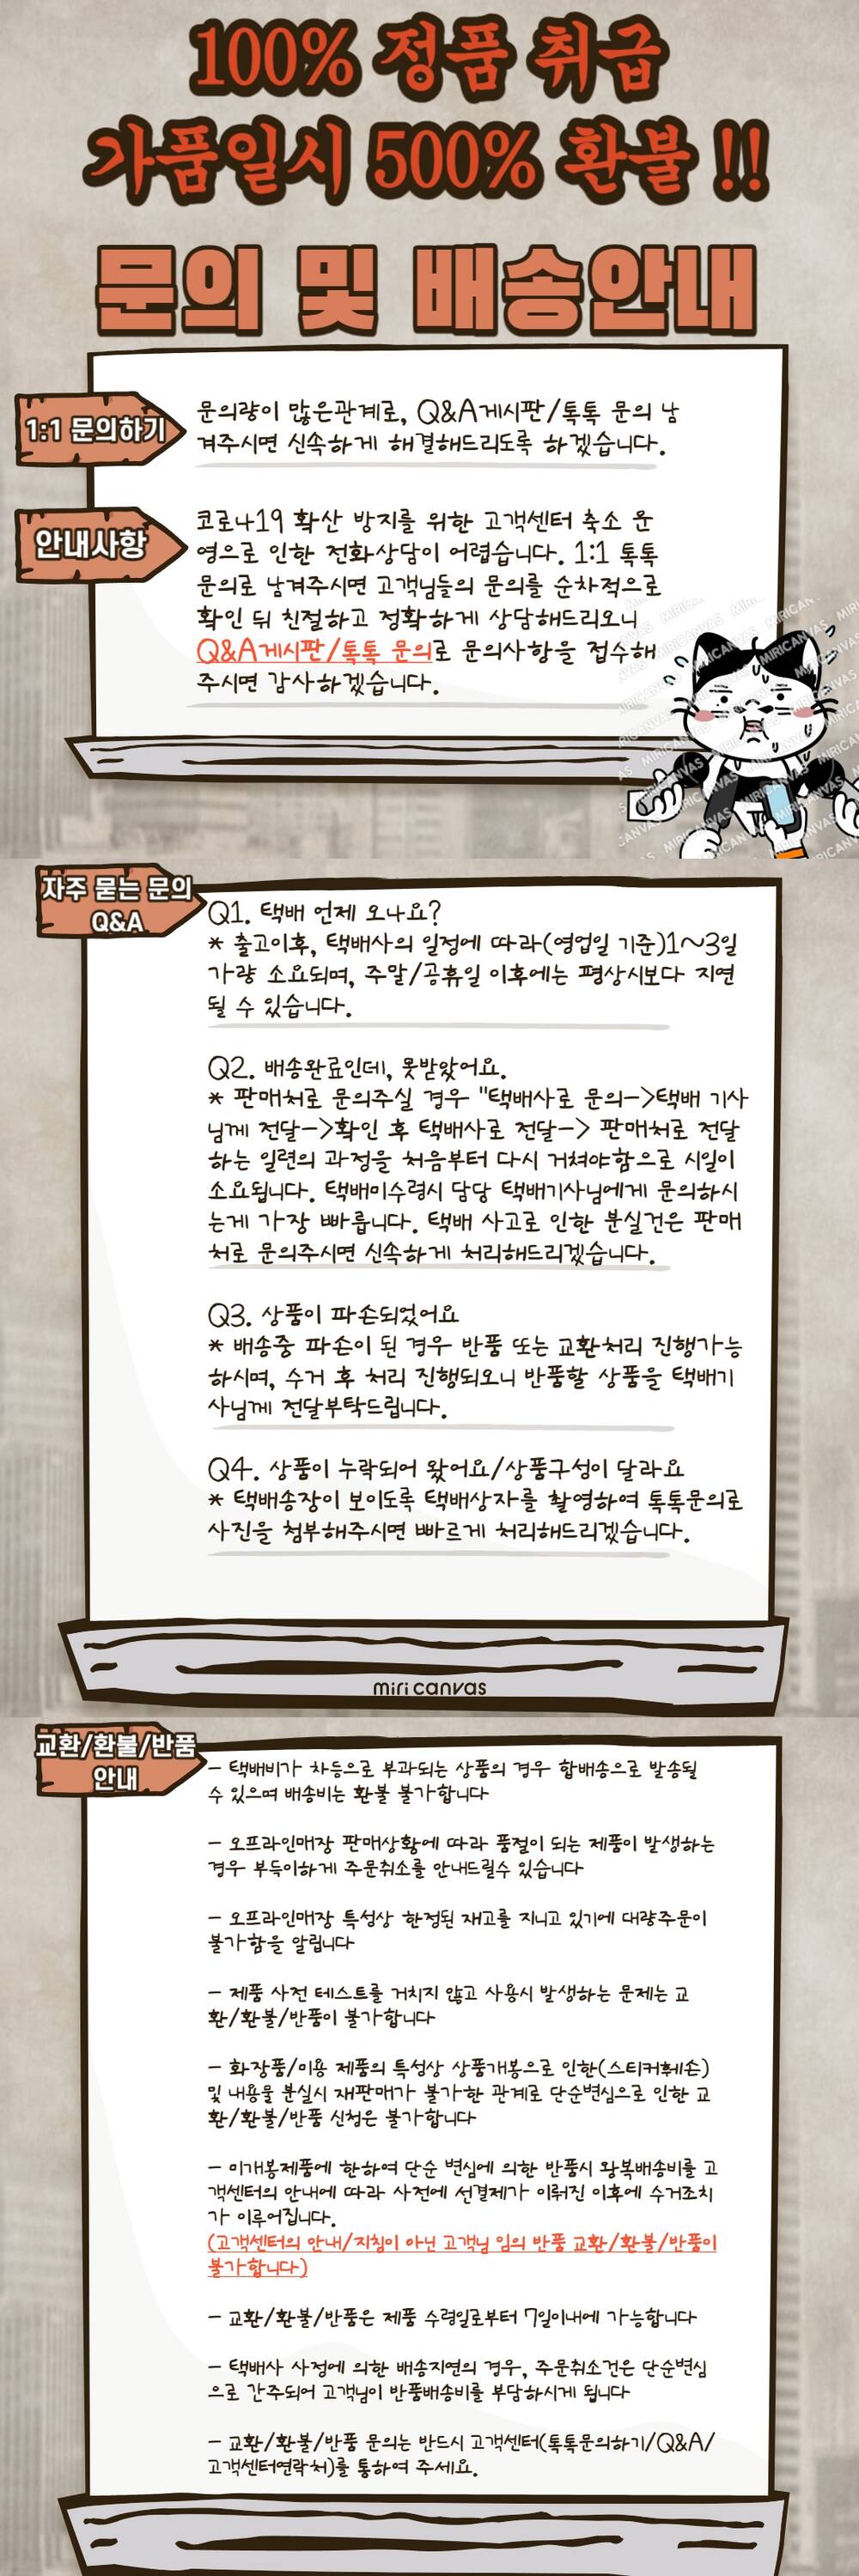 100% 정품 취급
가품일시 500% 환불 !!
문의 및 배송안내
1:1 문의하기
문의량이 많은관계로, Q&A게시판/톡톡 문의 남
겨주시면 신속하게 해결해드리도록 하겠습니다.
안내사항
코로나19 확산 방지를 위한 고객센터 축소 운
영으로 인한 전화상담이 어렵습니다. 1:1 톡톡
문의로 남겨주시면 고객님들의 문의를 순차적으로
확인 뒤 친절하고 정확하게 상담해드리오니
Q&A게시판/톡톡 문의로 문의사항을 접수해
주시면 감사하겠습니다.
MIRICANVAS
자주 묻는 문의
Q&A
Q1. 택배 언제 오나요?
* 출고이후, 택배사의 일정에 따라(영업일 기준)1~3일
가량 소요되며, 주말/공휴일 이후에는 평상시보다 지연
될 수 있습니다.
Q2. 배송완료인데, 못받았어요.
* 판매처로 문의주실 경우 "택배사로 문의->택배 기사
님께 전달->확인 후 택배사로 전달-> 판매처로 전달
하는 일련의 과정을 처음부터 다시 거쳐야함으로 시일이
소요됩니다. 택배미수령시 담당 택배기사님에게 문의하시
는게 가장 빠릅니다. 택배 사고로 인한 분실건은 판매
처로 문의주시면 신속하게 처리해드리겠습니다.
Q3. 상품이 파손되었어요
* 배송중 파손이 된 경우 반품 또는 교환처리 진행가능
하시며, 수거 후 처리 진행되오니 반품할 상품을 택배기
사님께 전달부탁드립니다.
Q4. 상품이 누락되어 왔어요/상품구성이 달라요
* 택배송장이 보이도록 택배상자를 촬영하여 톡톡문의로
사진을 첨부해주시면 빠르게 처리해드리겠습니다.
miri canvas
교환/환불/반품
안내
- 택배비가 차등으로 부과되는 상품의 경우 합배송으로 발송될
수 있으며 배송비는 환불 불가합니다
- 오프라인매장 판매상황에 따라 품절이 되는 제품이 발생하는
경우 부득이하게 주문취소를 안내드릴수 있습니다
- 오프라인매장 특성상 한정된 재고를 지니고 있기에 대량주문이
불가함을 알립니다
- 제품 사전 테스트를 거치지 않고 사용시 발생하는 문제는 교
환/환불/반품이 불가합니다
- 화장품/미용 제품의 특성상 상품개봉으로 인한(스티커훼손)
및 내용물 분실시 재판매가 불가한 관계로 단순변심으로 인한 교
환/환불/반품 신청은 불가합니다
- 미개봉제품에 한하여 단순 변심에 의한 반품시 왕복배송비를 고
객센터의 안내에 따라 사전에 선결제가 이뤄진 이후에 수거조치
가 이루어집니다.
(고객센터의 안내/지침이 아닌 고객님 임의 반품 교환/환불/반품이
불가합니다)
- 교환/환불/반품은 제품 수령일로부터 7일이내에 가능합니다
- 택배사 사정에 의한 배송지연의 경우, 주문취소건은 단순변심
으로 간주되어 고객님이 반품배송비를 부담하시게 됩니다
- 교환/환불/반품 문의는 반드시 고객센터(톡톡문의하기/Q&A/
고객센터연락처)를 통하여 주세요.